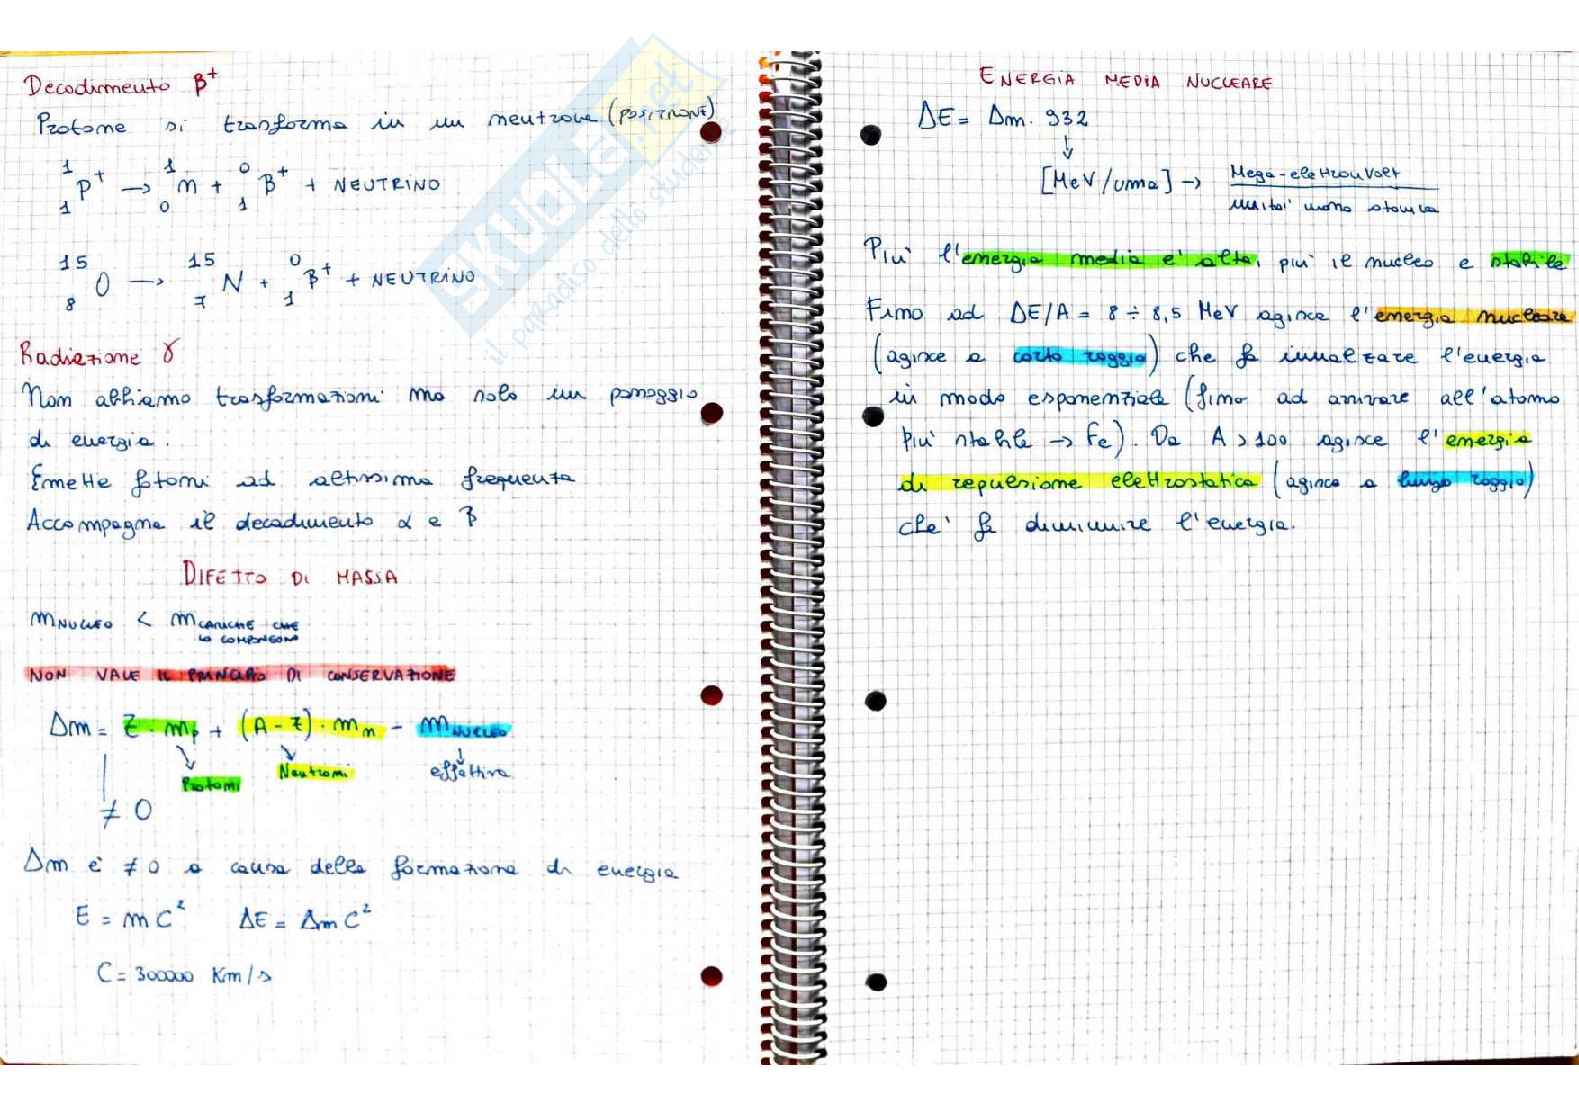 Decadimento β⁺
Protone si trasforma in un neutrone (POSITRONE)
¹₁P⁺ → ¹₀n + ⁰₁β⁺ + NEUTRINO
¹⁵₈O → ¹⁵₇N + ⁰₁β⁺ + NEUTRINO
Radiazione γ
Non abbiamo trasformazioni ma solo un passaggio
di energia.
Emette fotoni ad altissima frequenza
Accompagna il decadimento α e β
DIFETTO DI MASSA
m NUCLEO < m CARICHE CHE
LO COMPONGONO
NON VALE IL PRINCIPIO DI CONSERVAZIONE
Δm = Z · mp + (A - Z) · mn - m NUCLEO
Protoni Neutroni effettiva
≠ 0
Δm è ≠ 0 a causa della formazione di energia
E = mC² ΔE = ΔmC²
C = 300000 Km/s
ENERGIA MEDIA NUCLEARE
ΔE = Δm · 932
↓
[MeV/uma] → Mega-elettronVolt
unita' massa atomica
Piu' l'energia media e' alta, piu' il nucleo e stabile
Fino ad ΔE/A = 8 ÷ 8,5 MeV agisce l'energia nucleare
(agisce a corto raggio) che fa innalzare l'energia
in modo esponenziale (fino ad arrivare all'atomo
piu' stabile → Fe). Da A > 100 agisce l'energia
di repulsione elettrostatica (agisce a lungo raggio)
che' fa diminuire l'energia.
SKUOLA.net
il paradiso dello studente